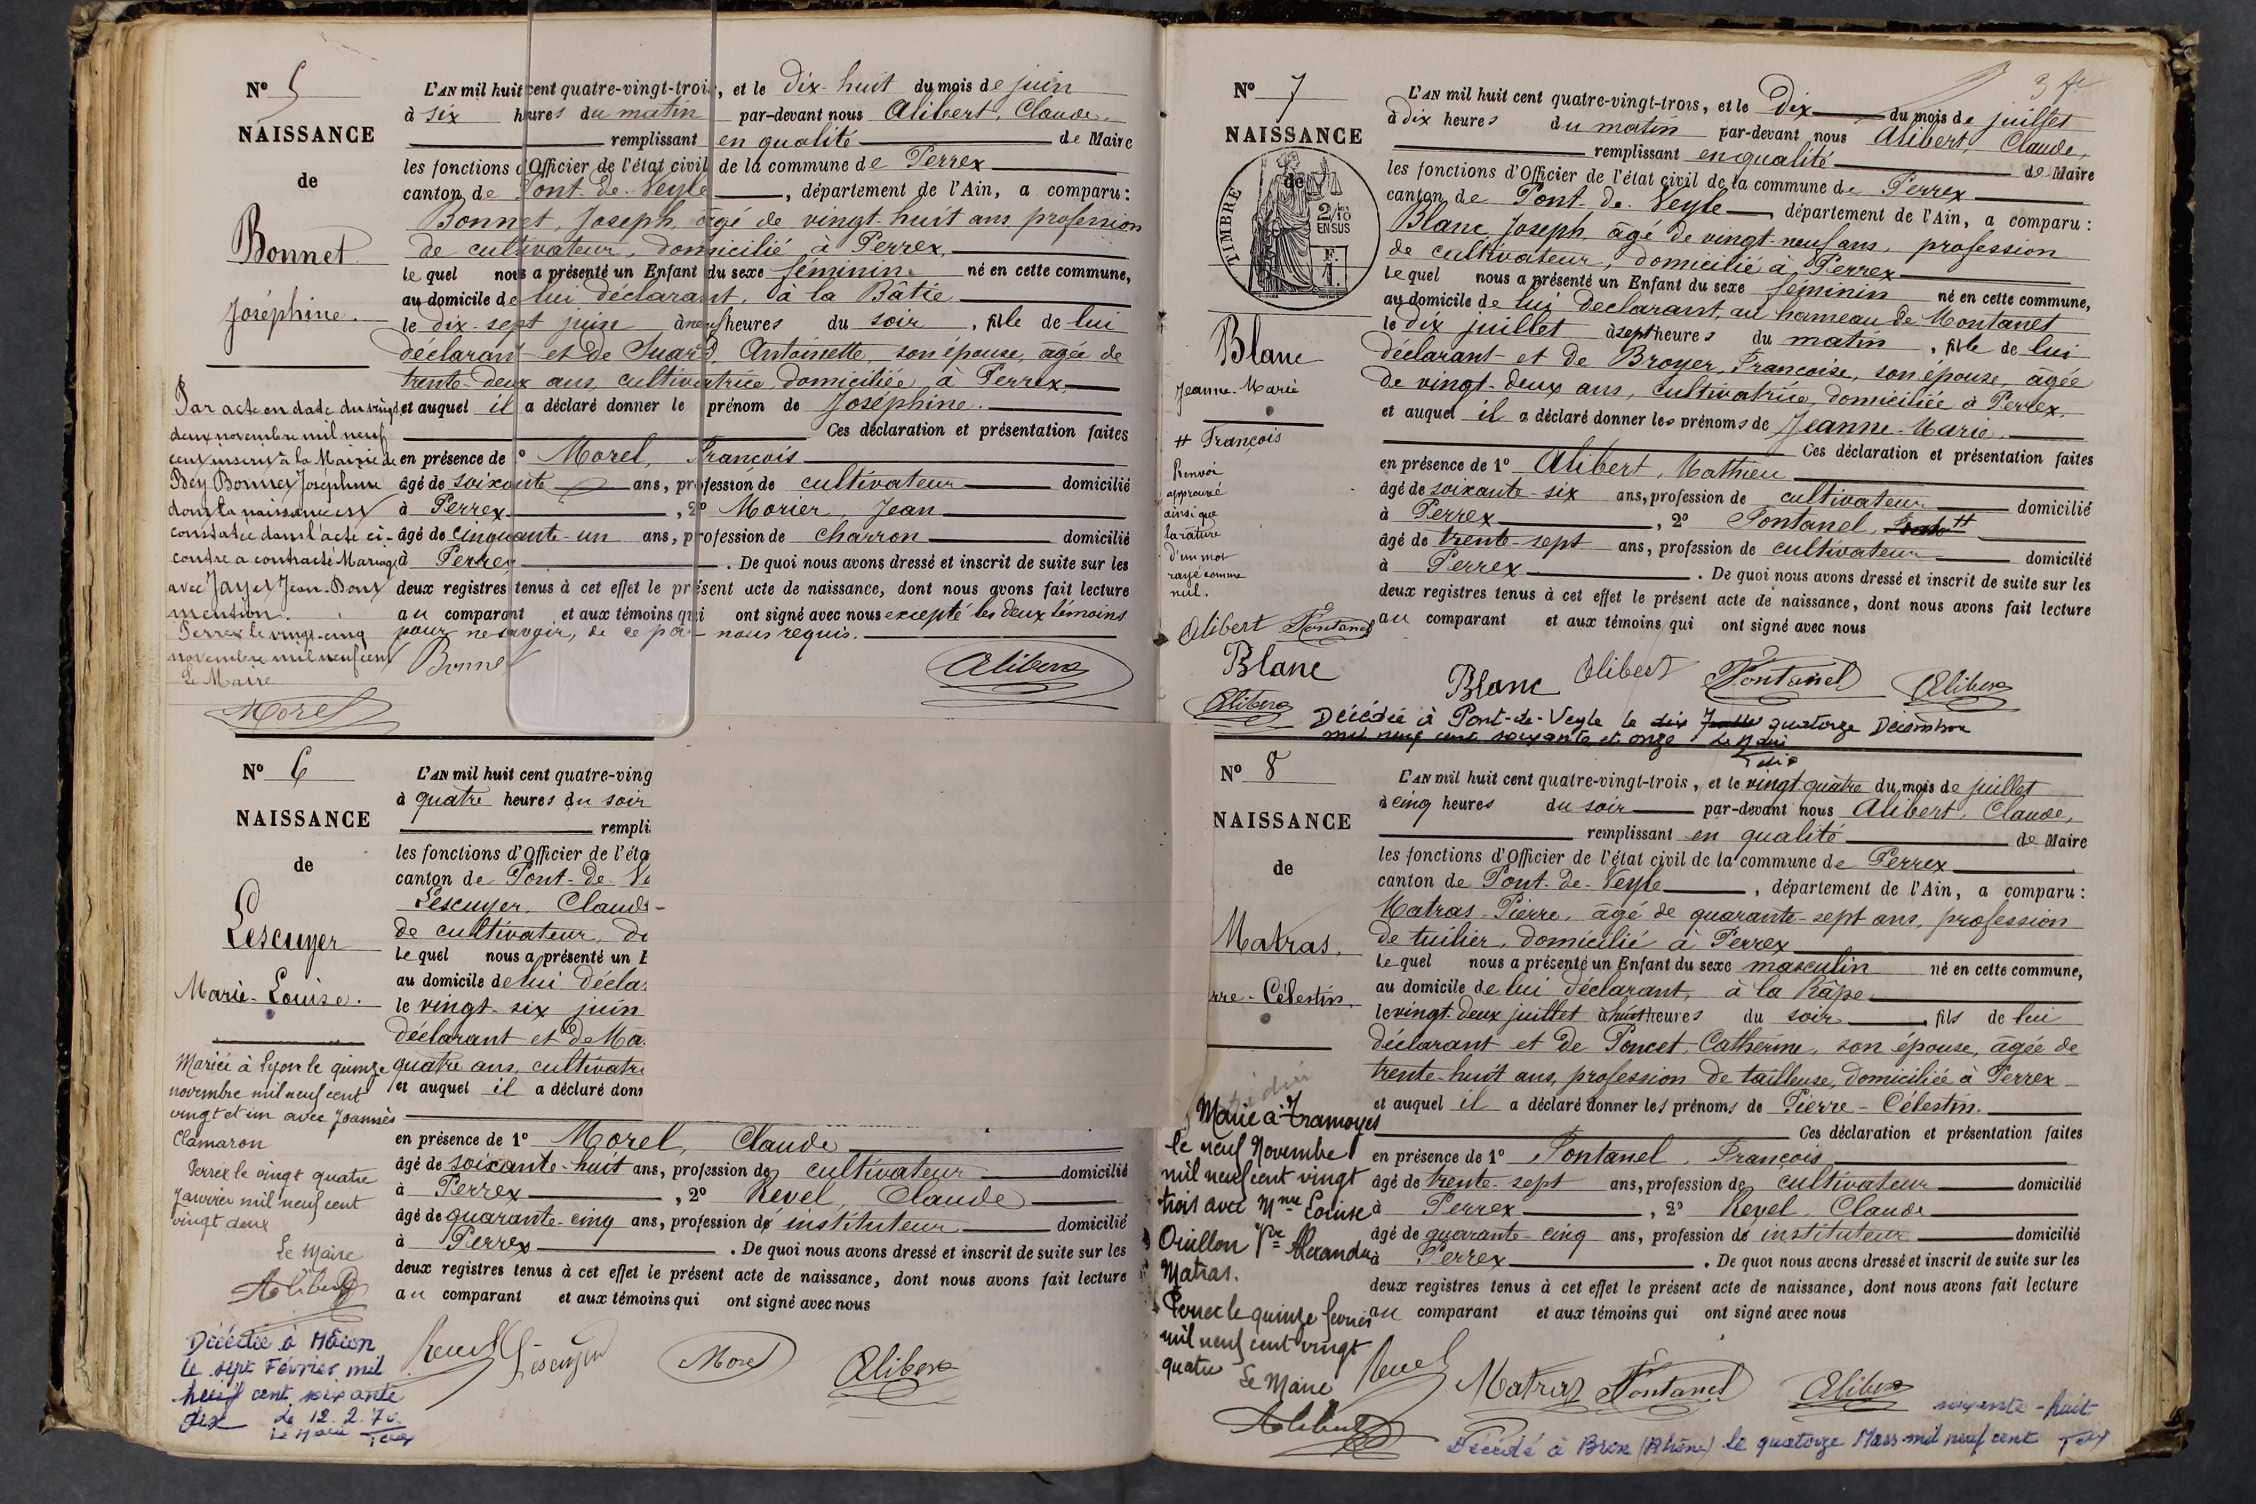 N° 5
NAISSANCE
de
Bonnet
Joséphine.
L'AN mil huit cent quatre-vingt-trois, et le dix-huit du mois de juin
à six heures du matin par-devant nous Alibert, Claude,
remplissant en qualité de Maire
les fonctions d'Officier de l'état civil de la commune de Perrex
canton de Pont-de-Veyle, département de l'Ain, a comparu:
Bonnet, Joseph, âgé de vingt-huit ans, profession
de cultivateur, domicilié à Perrex,
lequel nous a présenté un Enfant du sexe féminin né en cette commune,
au domicile de lui déclarant, à la Bâtie
le dix-sept juin à neuf heures du soir, fille de lui
déclarant et de Suard, Antoinette, son épouse, âgée de
trente-deux ans, cultivatrice, domiciliée à Perrex,
et auquel il a déclaré donner le prénom de Joséphine.
Ces déclaration et présentation faites
en présence de 1° Morel, François
âgé de soixante ans, profession de cultivateur domicilié
à Perrex, 2° Morier, Jean
âgé de cinquante-un ans, profession de charron domicilié
à Perrex. De quoi nous avons dressé et inscrit de suite sur les
deux registres tenus à cet effet le présent acte de naissance, dont nous avons fait lecture
au comparant et aux témoins qui ont signé avec nous excepté les deux témoins
pour ne savoir, de ce par nous requis.
Bonnet Alibert
Par acte en date du vingt
deux novembre mil neuf
cent inscrit à la Mairie de
Bey Bonnet Joséphine
dont la naissance est
constatée dans l'acte ci-
contre a contracté Mariage
avec Jayet Jean-Dont
mention.
Perrex le vingt-cinq
novembre mil neuf cent
Le Maire
Morel
N° 6
NAISSANCE
de
Lescuyer
Marie-Louise.
L'AN mil huit cent quatre-ving
à quatre heures du soir
rempli
les fonctions d'Officier de l'éta
canton de Pont-de-Ve
Lescuyer, Claude-
de cultivateur, do
lequel nous a présenté un E
au domicile de lui décla
le vingt-six juin
déclarant et de Ma
quatre ans, cultivatri
et auquel il a déclaré donn
en présence de 1° Morel, Claude
âgé de soixante-huit ans, profession de cultivateur domicilié
à Perrex, 2° Revel, Claude
âgé de quarante-cinq ans, profession de instituteur domicilié
à Perrex. De quoi nous avons dressé et inscrit de suite sur les
deux registres tenus à cet effet le présent acte de naissance, dont nous avons fait lecture
au comparant et aux témoins qui ont signé avec nous
Revel Lescuyer Morel Alibert
Mariée à Lyon le quinze
novembre mil neuf cent
vingt et un avec Joannès
Clamaron
Perrex le vingt quatre
Janvier mil neuf cent
vingt deux
Le Maire
Alibert
Décédée à Mâcon
le sept Février mil
neuf cent soixante
dix Le 12.2.70
Le Maire
N° 7
NAISSANCE
de
TIMBRE
2/10 EN SUS
F.
1.
Blanc
Jeanne-Marie
L'AN mil huit cent quatre-vingt-trois, et le dix du mois de juillet
à dix heures du matin par-devant nous Alibert, Claude,
remplissant en qualité de Maire
les fonctions d'Officier de l'état civil de la commune de Perrex
canton de Pont-de-Veyle, département de l'Ain, a comparu:
Blanc, Joseph, âgé de vingt-neuf ans, profession
de cultivateur, domicilié à Perrex
lequel nous a présenté un Enfant du sexe féminin né en cette commune,
au domicile de lui déclarant, au hameau de Montanet
le dix juillet à sept heures du matin, fille de lui
déclarant et de Broyer, Françoise, son épouse, âgée
de vingt-deux ans, cultivatrice, domiciliée à Perrex,
et auquel il a déclaré donner les prénoms de Jeanne-Marie.
Ces déclaration et présentation faites
en présence de 1° Alibert, Mathieu
âgé de soixante-six ans, profession de cultivateur domicilié
à Perrex, 2° Fontanel, #
âgé de trente-sept ans, profession de cultivateur domicilié
à Perrex. De quoi nous avons dressé et inscrit de suite sur les
deux registres tenus à cet effet le présent acte de naissance, dont nous avons fait lecture
au comparant et aux témoins qui ont signé avec nous
Blanc Alibert Fontanel Alibert
# François
Renvoi
approuvé
ainsi que
la rature
d'un mot
rayé comme
nul.
Alibert Fontanel
Blanc
Alibert
Décédée à Pont-de-Veyle le dix quatorze Décembre
mil neuf cent soixante et onze Le Maire
N° 8
NAISSANCE
de
Matras.
rre-Célestin.
L'AN mil huit cent quatre-vingt-trois, et le vingt-quatre du mois de juillet
à cinq heures du soir par-devant nous Alibert, Claude,
remplissant en qualité de Maire
les fonctions d'Officier de l'état civil de la commune de Perrex
canton de Pont-de-Veyle, département de l'Ain, a comparu:
Matras, Pierre, âgé de quarante-sept ans, profession
de tuilier, domicilié à Perrex
lequel nous a présenté un Enfant du sexe masculin né en cette commune,
au domicile de lui déclarant, à la Râpe
le vingt-deux juillet à huit heures du soir, fils de lui
déclarant et de Poncet, Catherine, son épouse, âgée de
trente-huit ans, profession de tailleuse, domiciliée à Perrex
et auquel il a déclaré donner les prénoms de Pierre-Célestin.
Ces déclaration et présentation faites
en présence de 1° Fontanel, François
âgé de trente-sept ans, profession de cultivateur domicilié
à Perrex, 2° Revel, Claude
âgé de quarante-cinq ans, profession de instituteur domicilié
à Perrex. De quoi nous avons dressé et inscrit de suite sur les
deux registres tenus à cet effet le présent acte de naissance, dont nous avons fait lecture
au comparant et aux témoins qui ont signé avec nous
Revel Matras Fontanel Alibert
Marié à Tramoyes
le neuf Novembre
mil neuf cent vingt
trois avec Mme Louise
Ouillon Vve Alexandre
Matras.
Perrex le quinze février
mil neuf cent vingt
quatre Le Maire
Alibert
soixante-huit
Décédé à Bron (Rhône) le quatorze Mars mil neuf cent